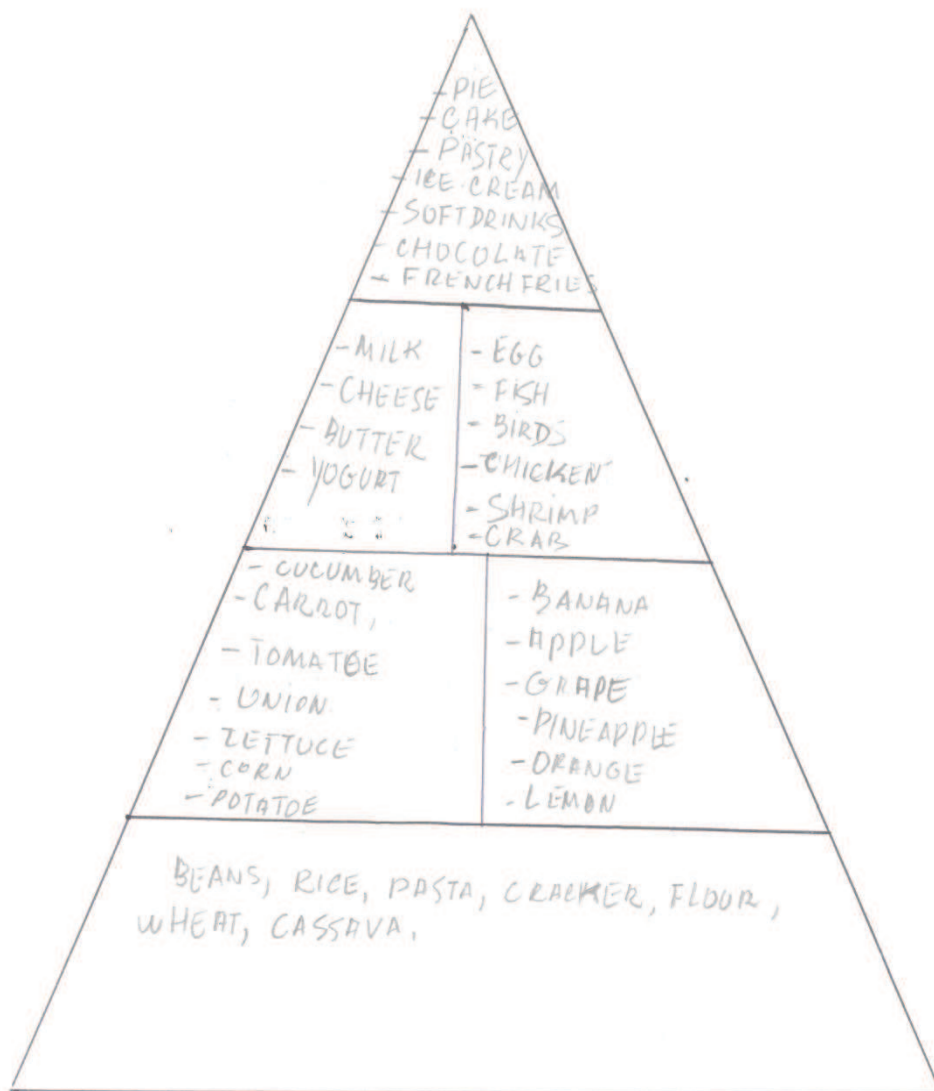 - PIE
- CAKE
- PASTRY
- ICE CREAM
- SOFTDRINKS
- CHOCOLATE
- FRENCH FRIES
- MILK
- CHEESE
- BUTTER
- YOGURT
- EGG
- FISH
- BIRDS
- CHICKEN
- SHRIMP
- CRAB
- CUCUMBER
- CARROT,
- TOMATOE
- UNION
- LETTUCE
- CORN
- POTATOE
- BANANA
- APPLE
- GRAPE
- PINEAPPLE
- ORANGE
- LEMON
BEANS, RICE, PASTA, CRACKER, FLOUR,
WHEAT, CASSAVA.